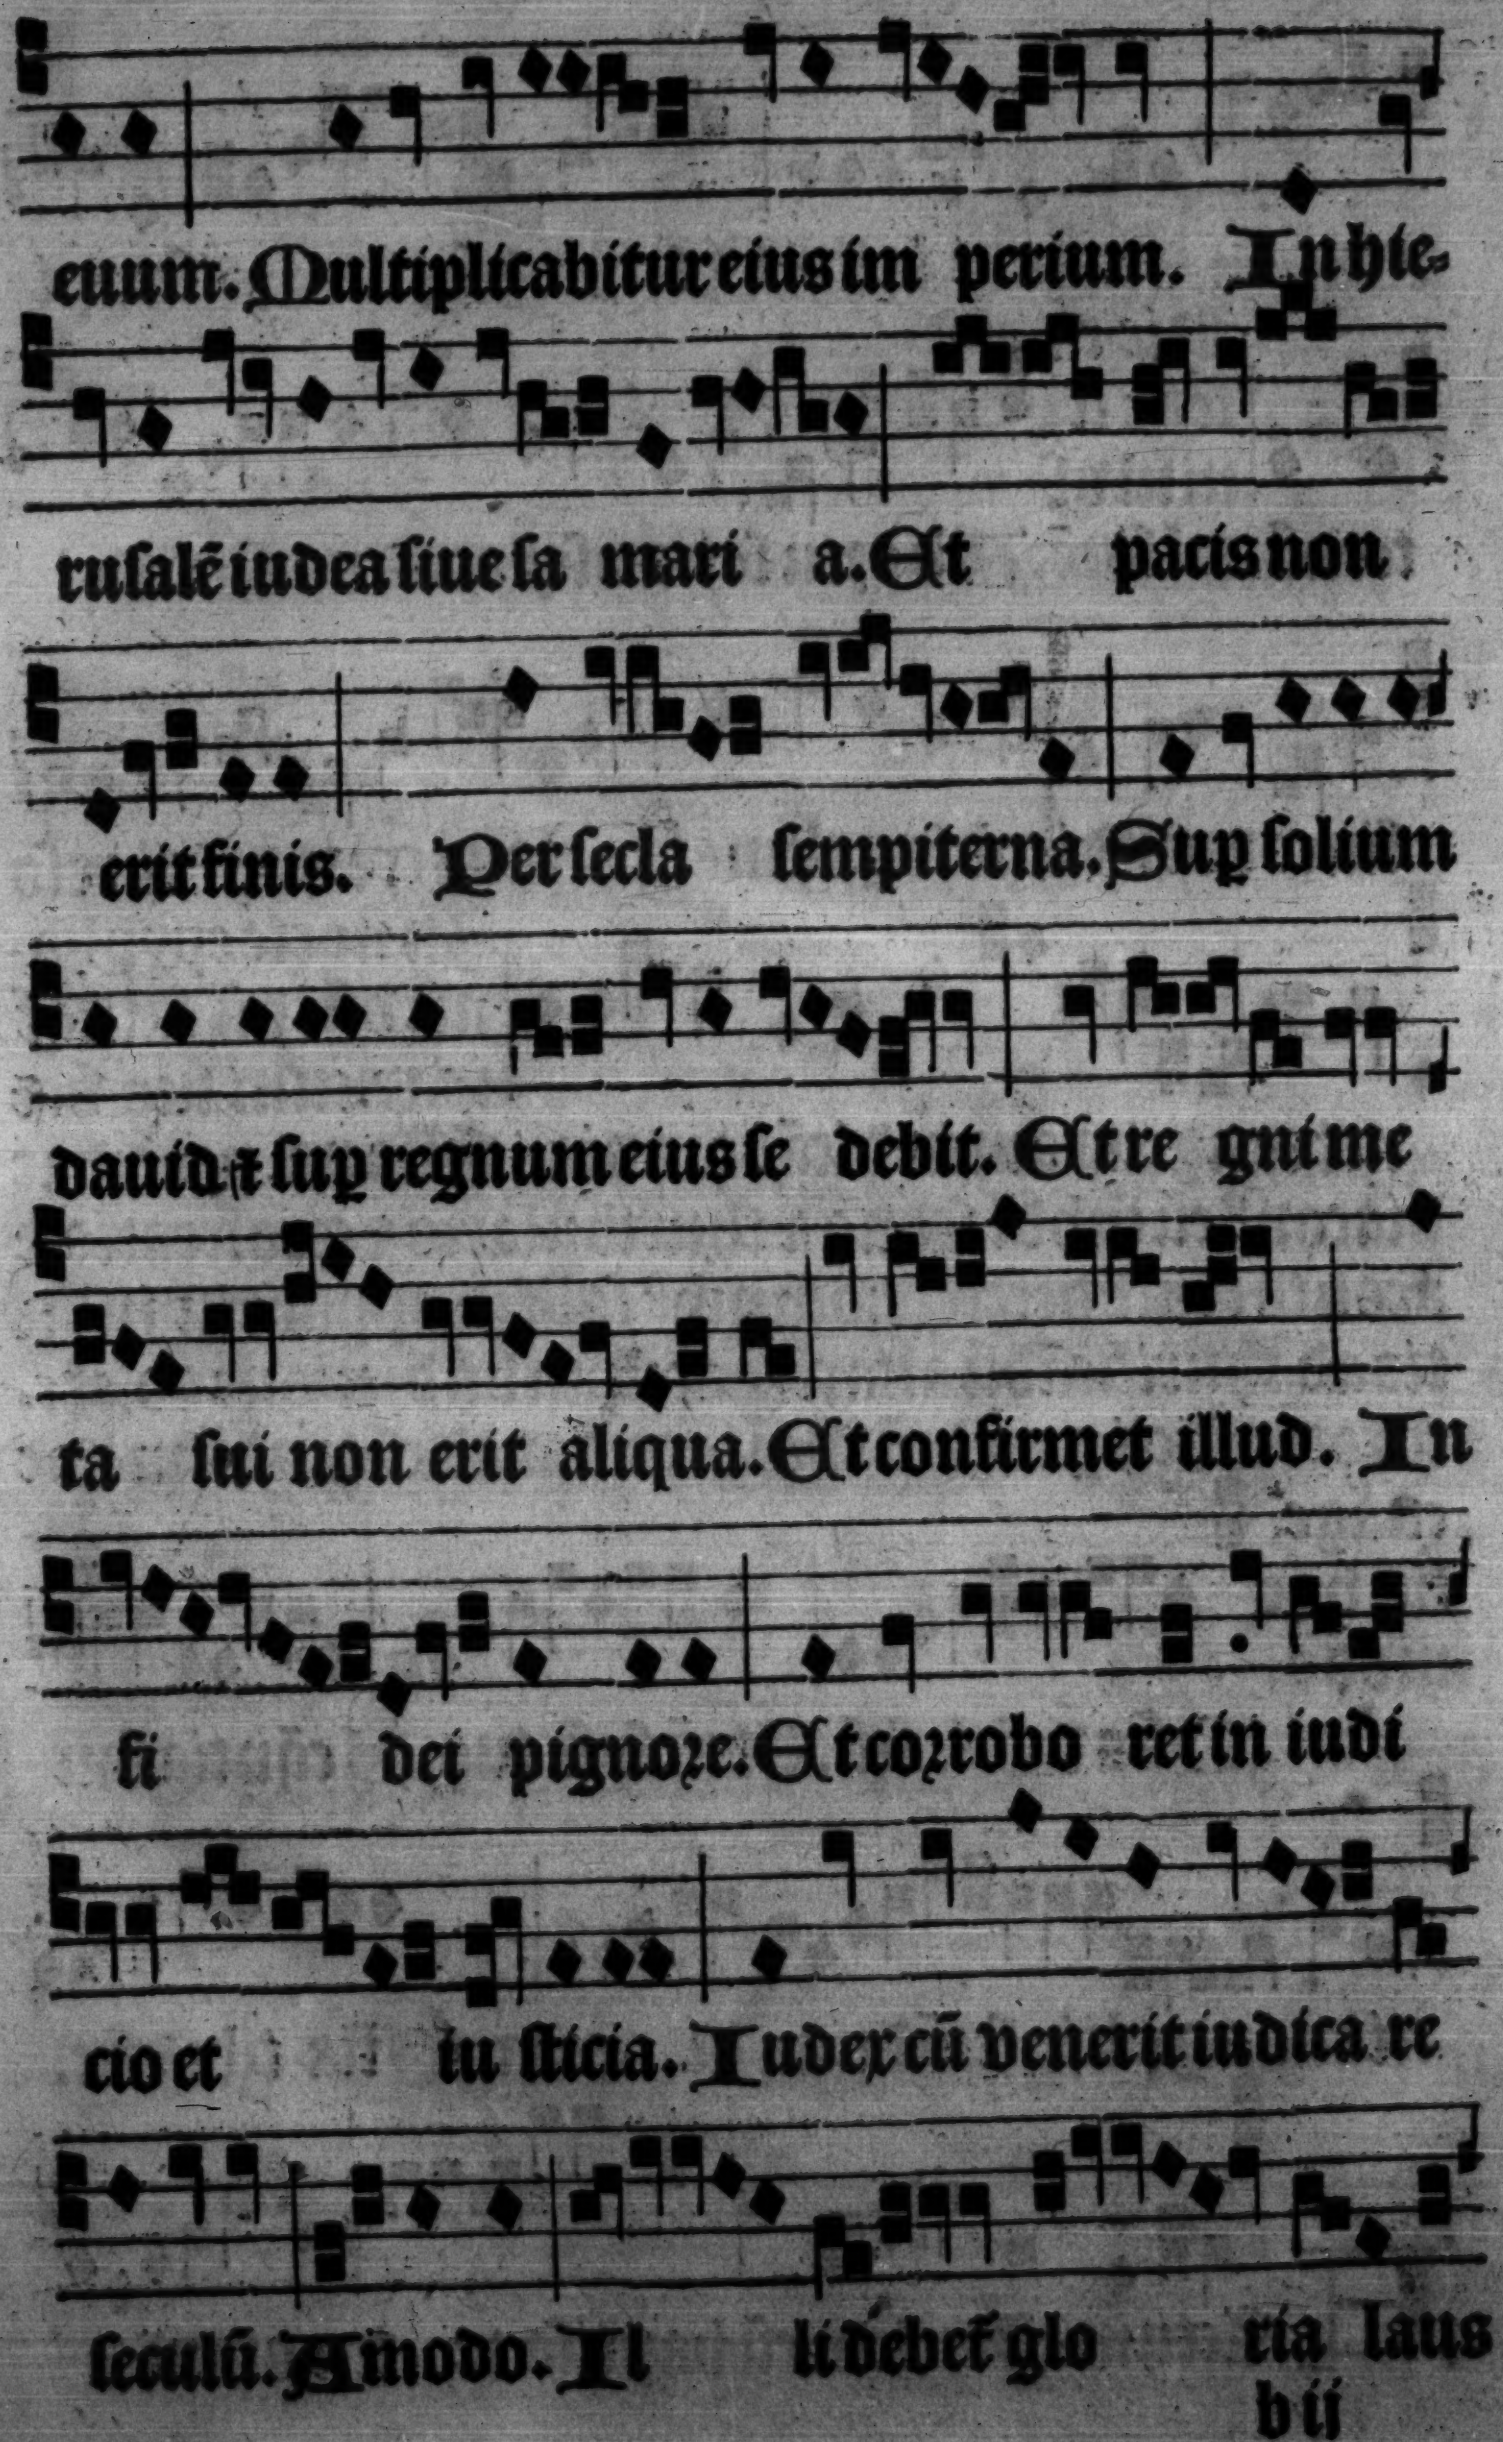 euum. Multiplicabitur eius im perium. In hie-
rusalē iudea siue sa mari a. Et pacis non
erit finis. Per secla sempiterna. Sup̱ solium
dauid ⁊ sup̱ regnum eius se debit. Et re gni me
ta sui non erit aliqua. Et confirmet illud. In
fi dei pignore. Et corrobo ret in iudi
cio et iu sticia. Iudex cū venerit iudica re
seculū. Amodo. Il li debet̄ glo ria laus
b ij